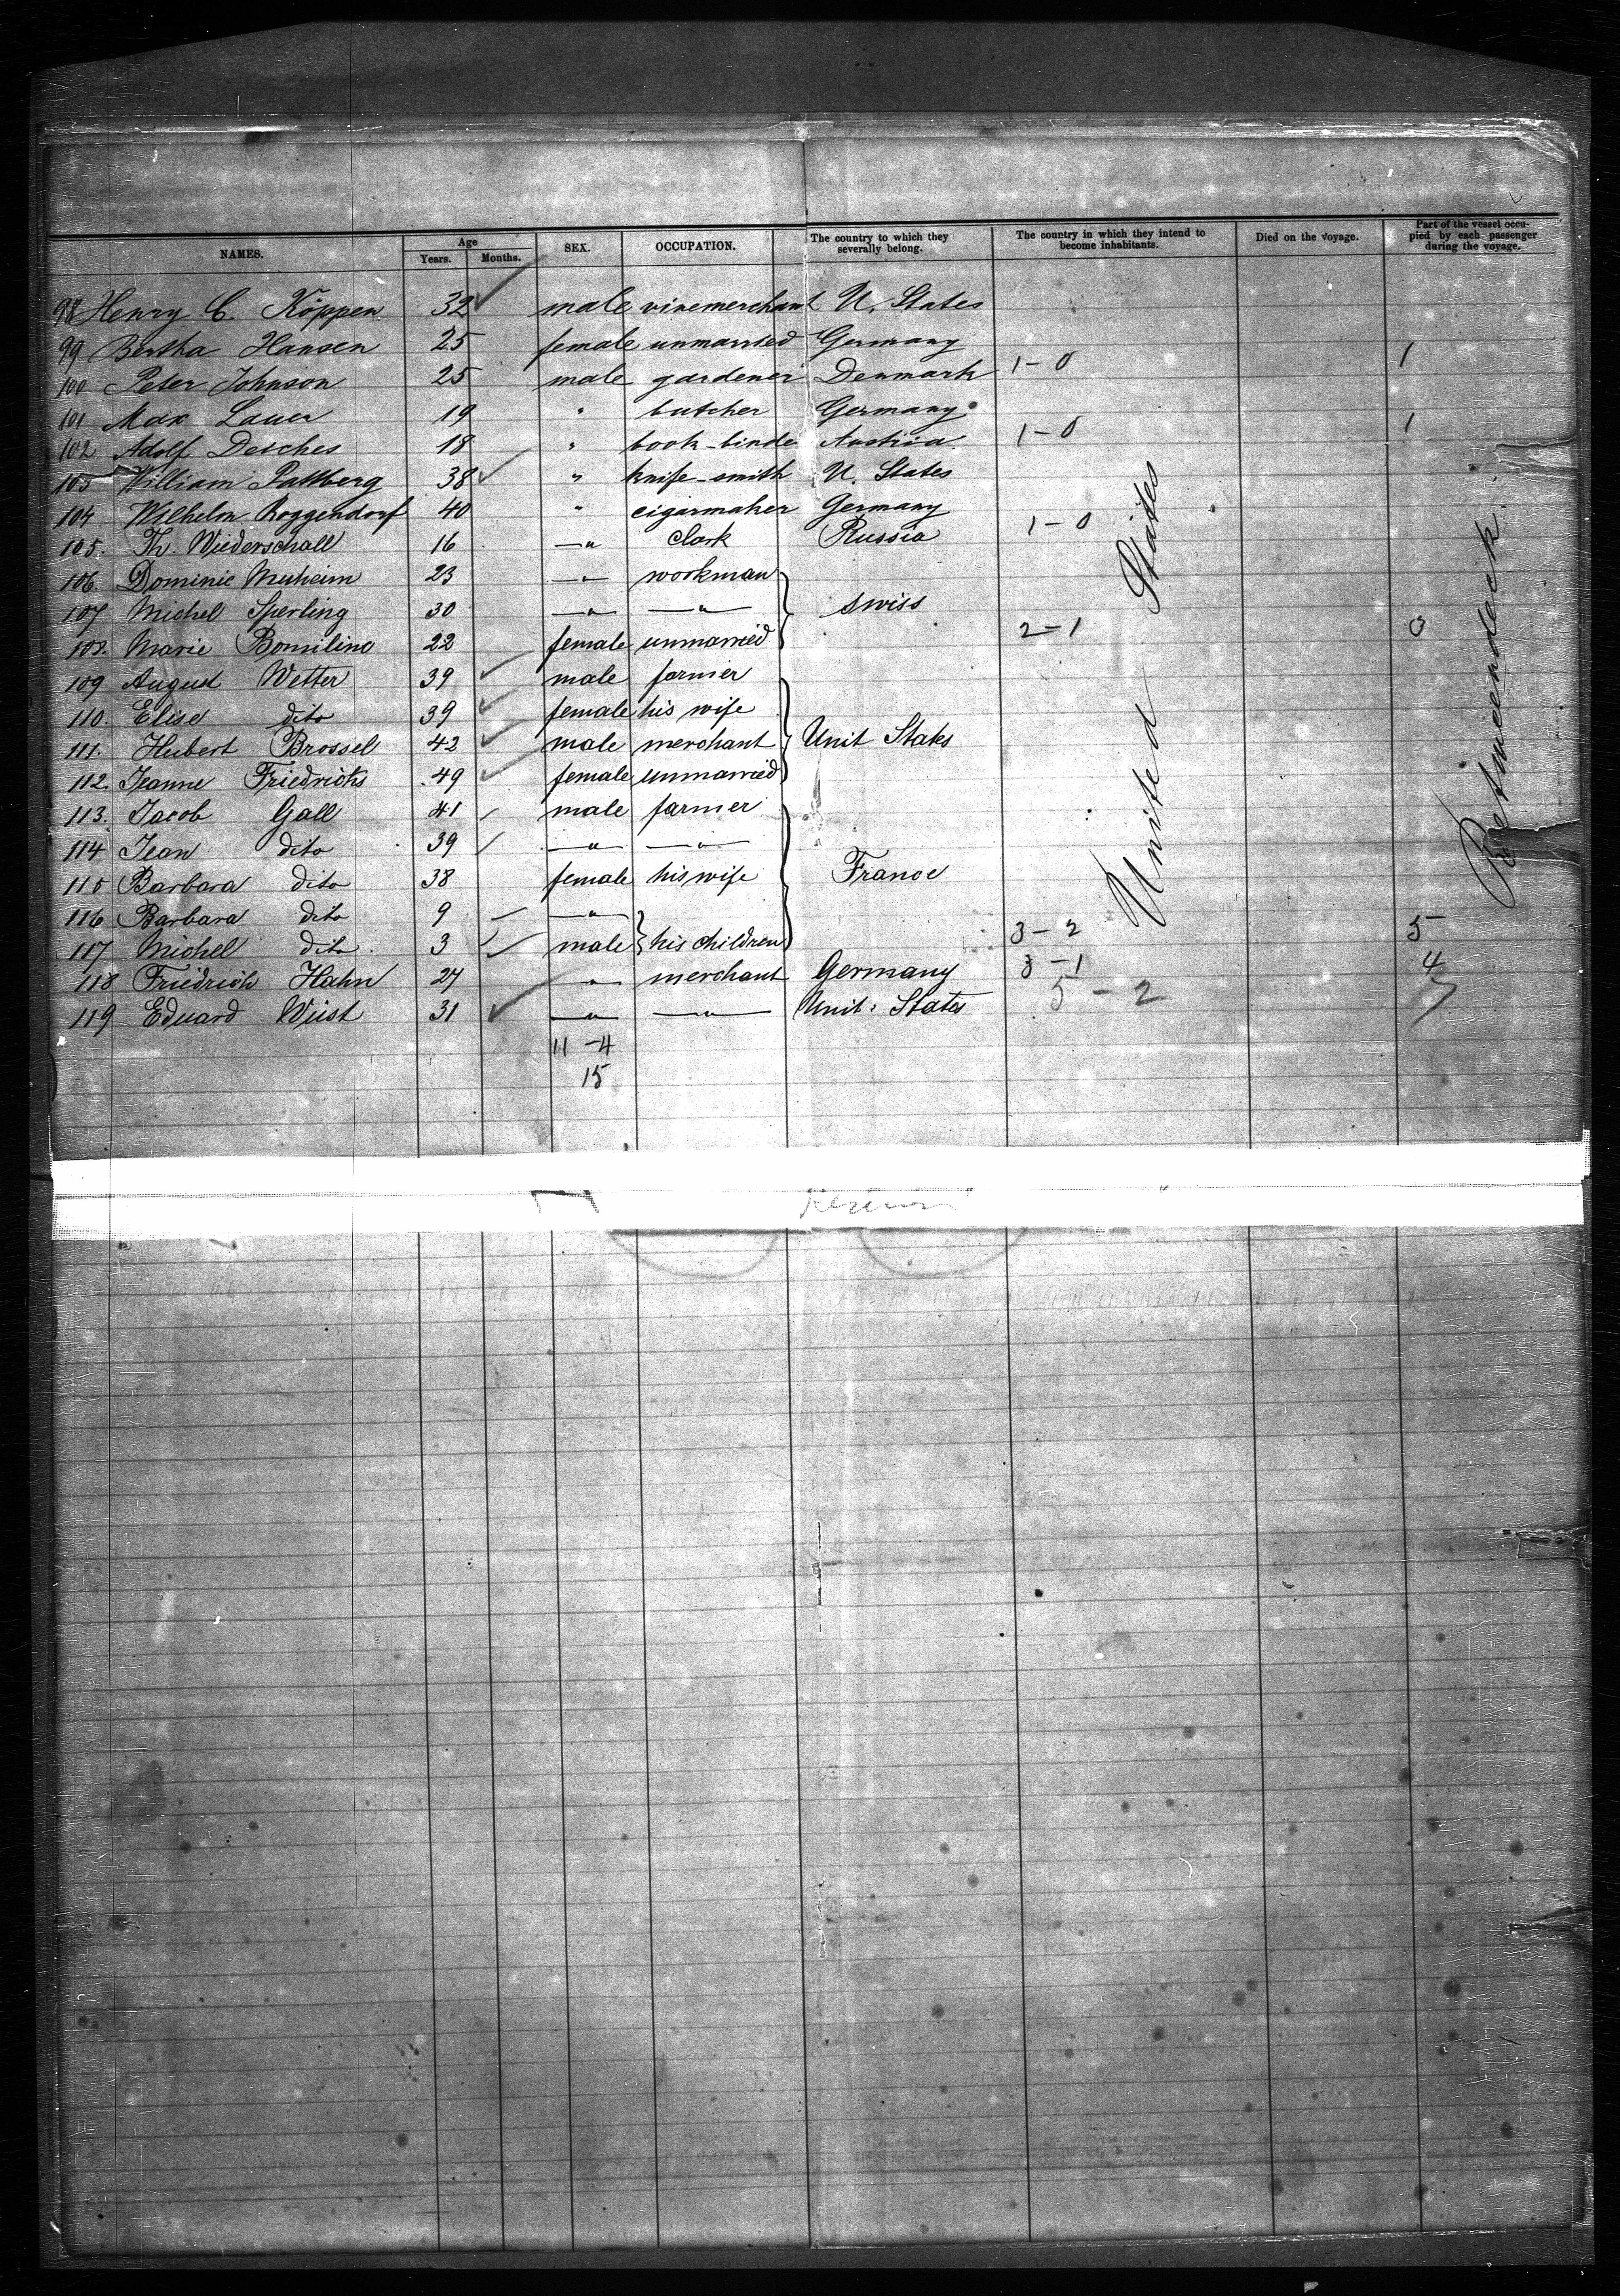 NAMES. Age Years. Months. SEX. OCCUPATION. The country to which they severally belong. The country in which they intend to become inhabitants. Died on the Voyage. Part of the vessel occupied by each passenger during the voyage.
98 Henry C. Köppen 32 male vinemerchant U. States
99 Bertha Hansen 25 female unmarried Germany 1
100 Peter Johnson 25 male gardener Denmark 1-0
101 Max Lauer 19 " butcher Germany 1
102 Adolf Desches 18 " book-binde Austria 1-0
103 William Pattberg 38 " knife-smith U. States
104 Wilhelm Roggendorf 40 " cigarmaker Germany 1-0
105. Th. Wiederschall 16 —"— Clark Russia
106. Dominic Muheim 23 —"— workman
107 Michel Sperling 30 —"— —"— swiss
108. Marie Bomilino 22 female unmarried 2-1 3
109 August Wetter 39 male farmer
110. Elise dito 39 female his wife
111. Hubert Brossel 42 male merchant Unit States
112. Jeanne Friedrichs 49 female unmarried
113. Jacob Gall 41 male farmer
114 Jean dito 39 —"— —"—
115 Barbara dito 38 female his wife France
116 Barbara dito 9 —"—
117 Michel dito 3 male his children 3-2 5
118 Friedrich Hahn 27 —"— merchant Germany 3-1 4
119 Eduard Wüst 31 —"— —"— Unit. States 5-2 7
11-4
15
United States
Betweendeck